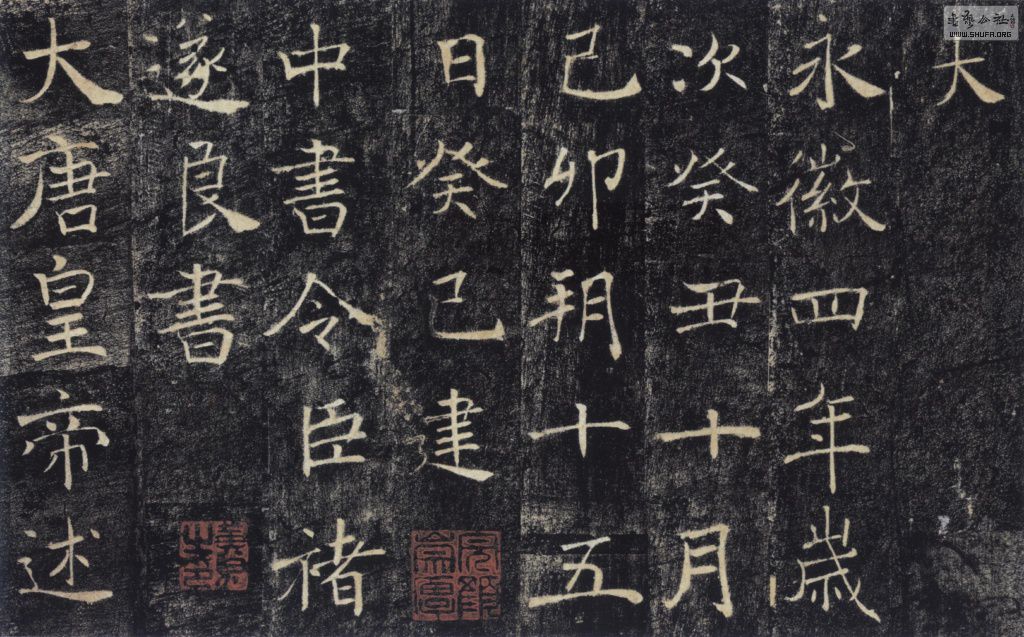 大
永徽四年歲
次癸丑十月
己卯朔十五
日癸巳建
中書令臣褚
遂良書
大唐皇帝述
WWW.SHUFA.ORG